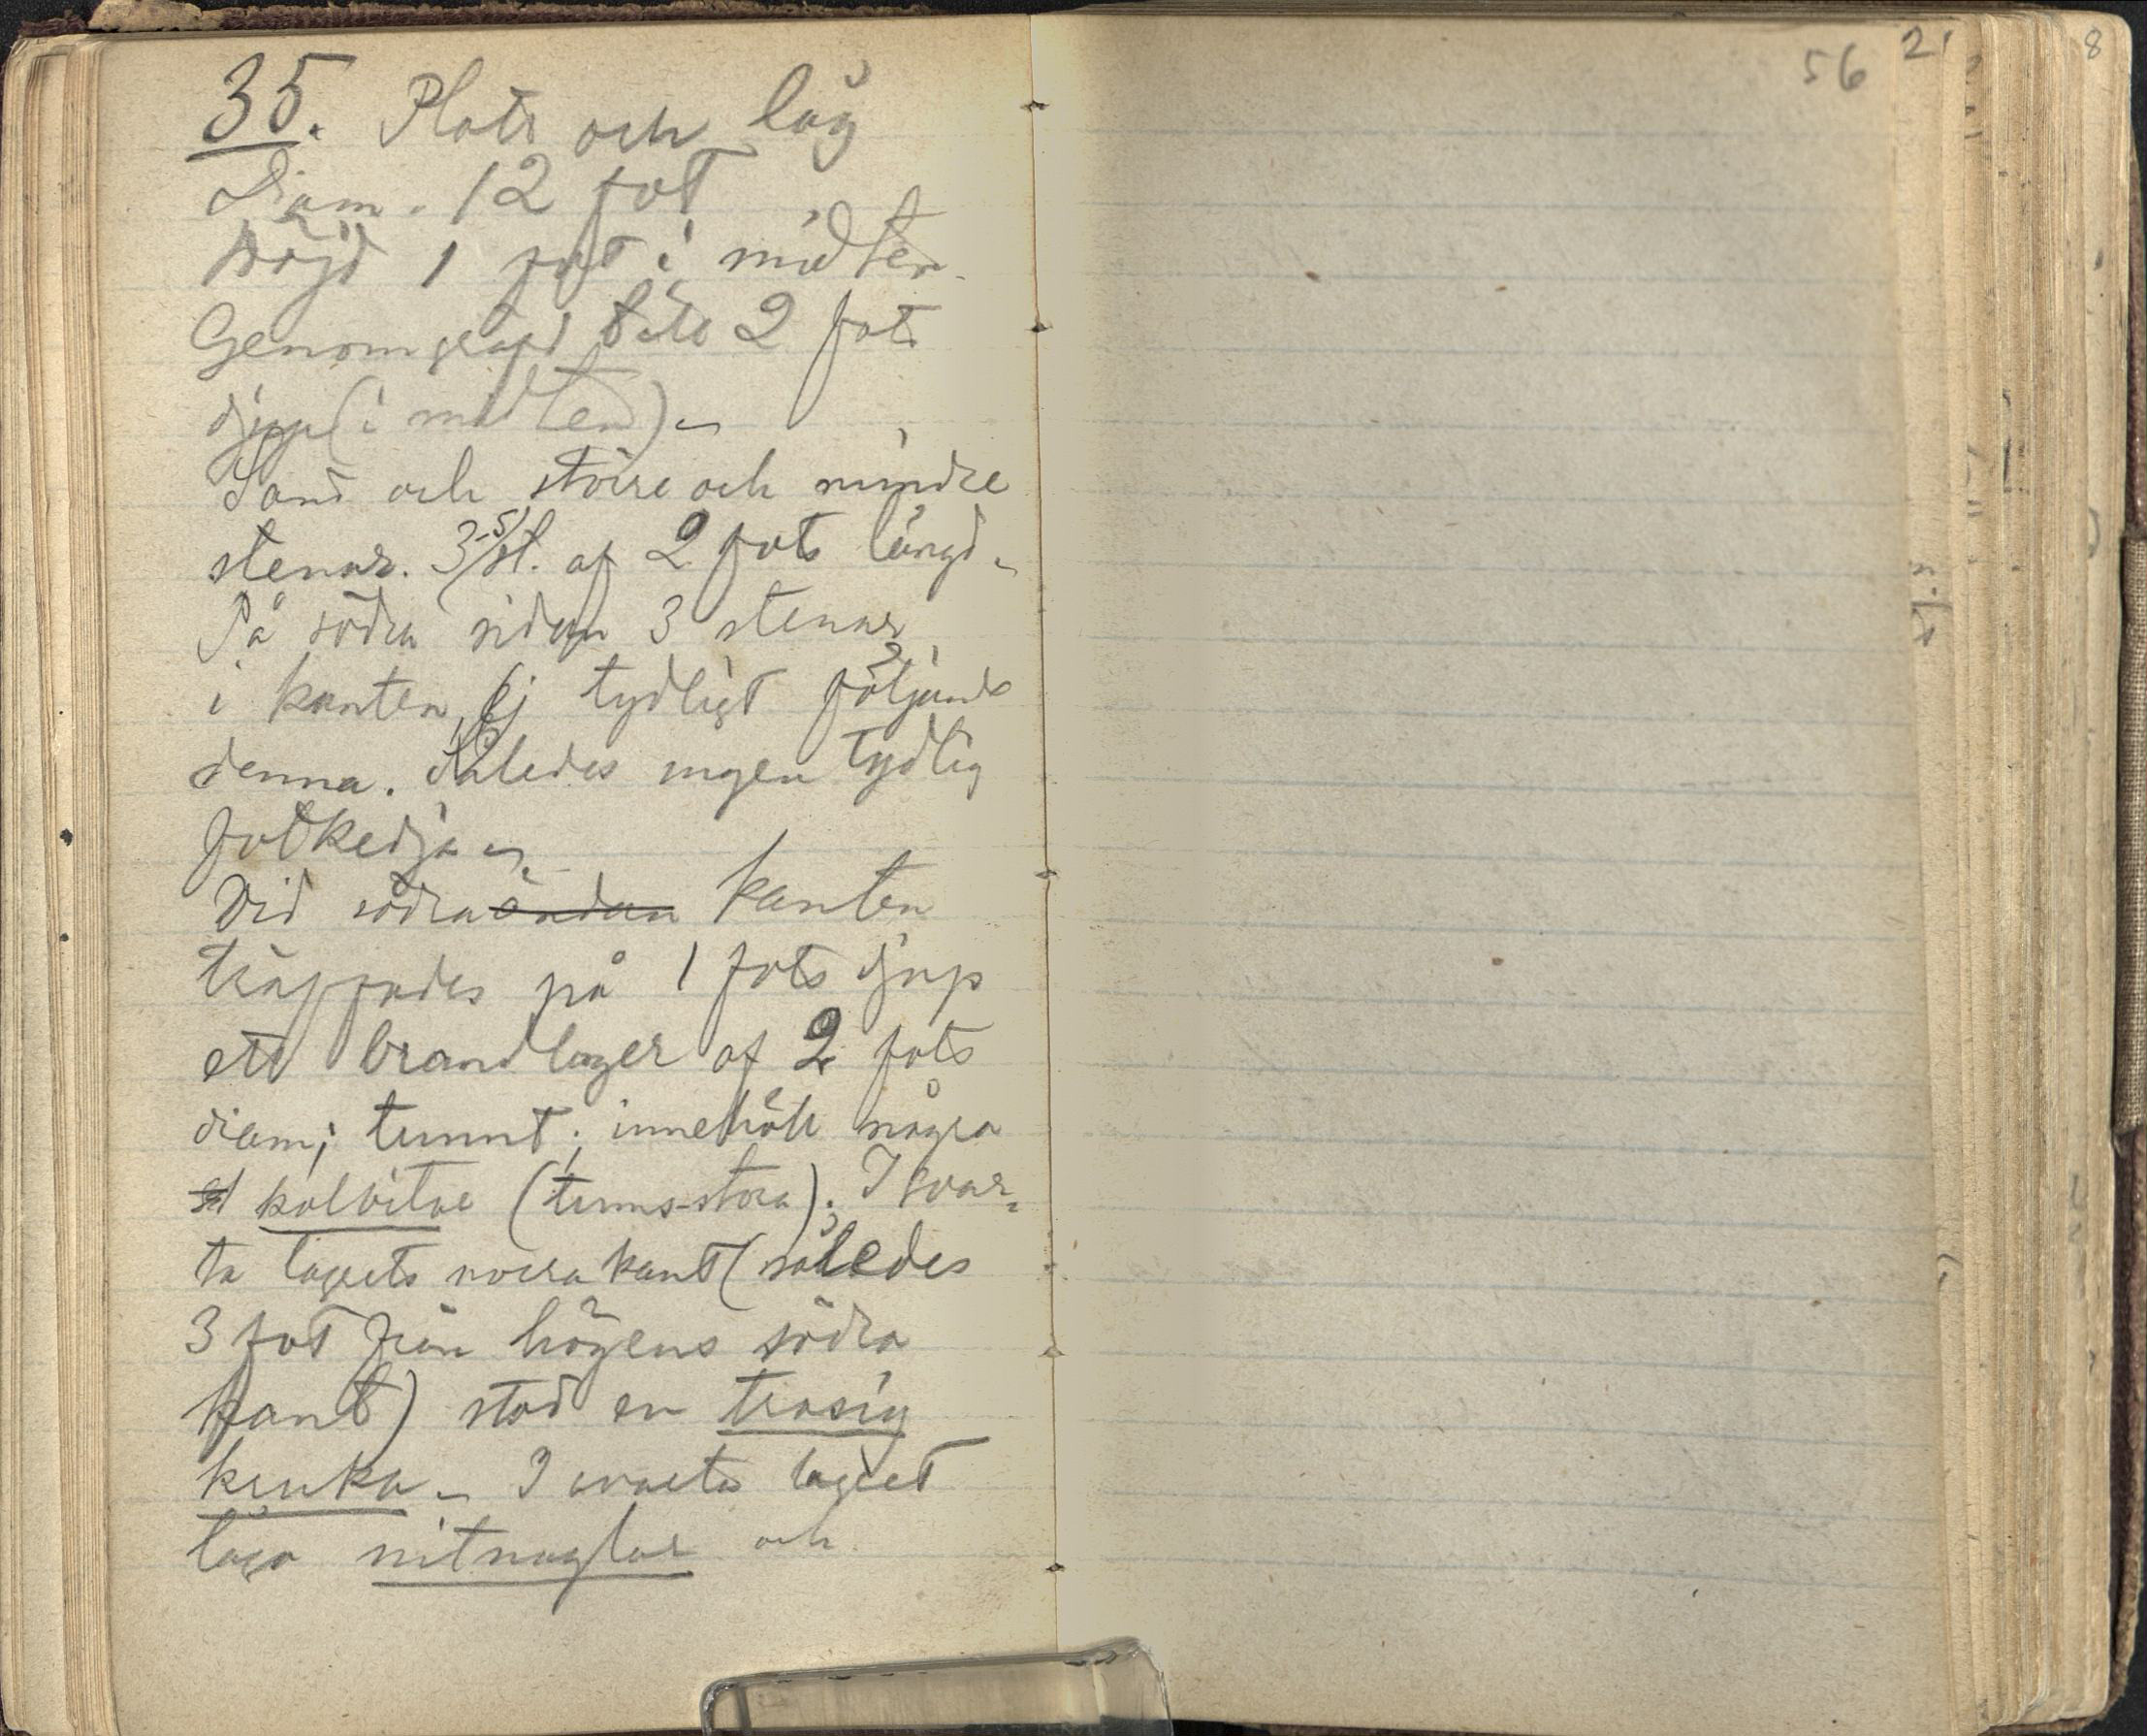 35. Platt och låg
Diam. 12 fot
Höjd 1 fot i midten.
Genomgräfd till 2 fots
djup (i midten) –
Sand och större och mindre
stenar. 3-5/st. af 2 fots längd –
På södra sidan 3 stenar
i kanten, ej tydligt följande
denna. Således ingen tydlig
fotkedja –
Vid södra ändan kanten
träffades på 1 fots djup
ett brandlager af 2 fots
diam; tunnt; innehöll några
st kolbitar (tums-stora). I svar-
ta lagrets norra kant (således
3 fot från högens södra
kant) stod en trasig
kruka – I svarta lagret
lågo nitnaglar och
56
21
8